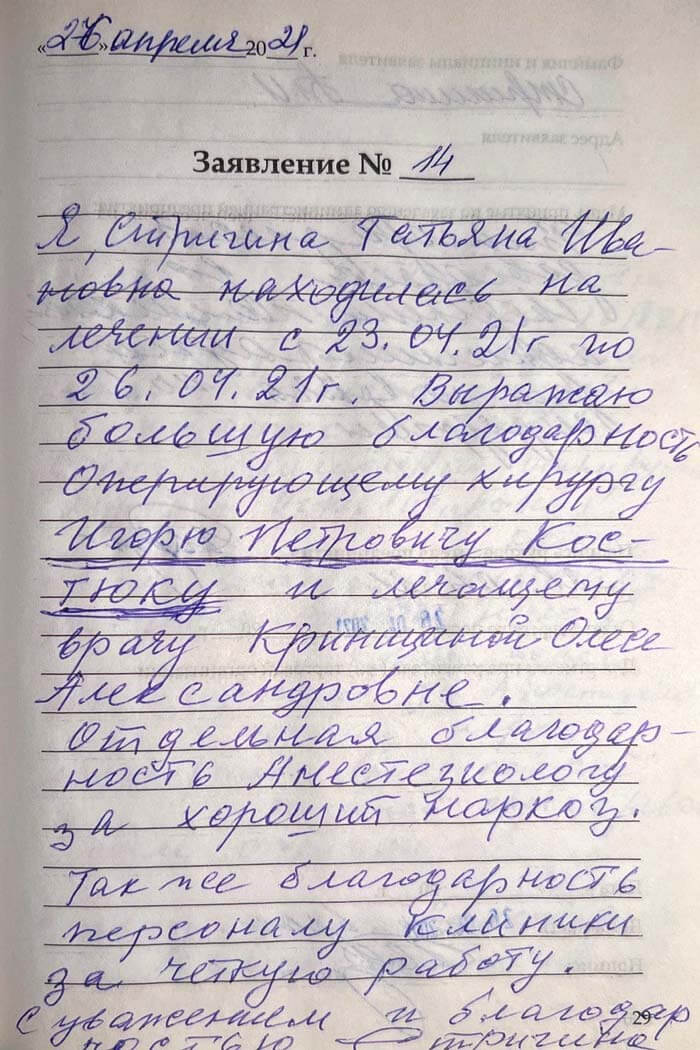 «26» апреля 2021 г.
Заявление № 14
Я, Стригина Татьяна Ива-
новна находилась на
лечении с 23.04.21г по
26.04.21г. Выражаю
большую благодарность
Оперирующему хирургу
Игорю Петровичу Кос-
тюку и лечащему
врачу Криницкой Олесе
Александровне.
Отдельная благодар-
ность Анестезиологу
за хороший наркоз.
Так же благодарность
персоналу клиники
за чёткую работу.
с уважением и благодар
ностью Стригина
29